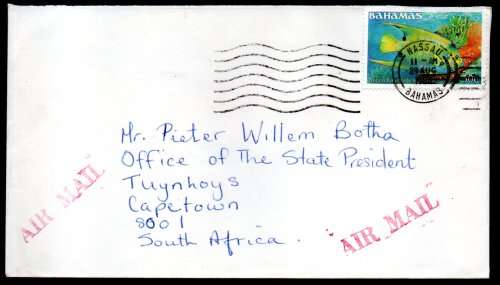 BAHAMAS
NASSAU
11 - AM
29 AUG
BAHAMAS
Mr. Pieter Willem Botha
Office of The State President
Tuynhoys
Capetown
8001
South Africa.
AIR MAIL
AIR MAIL